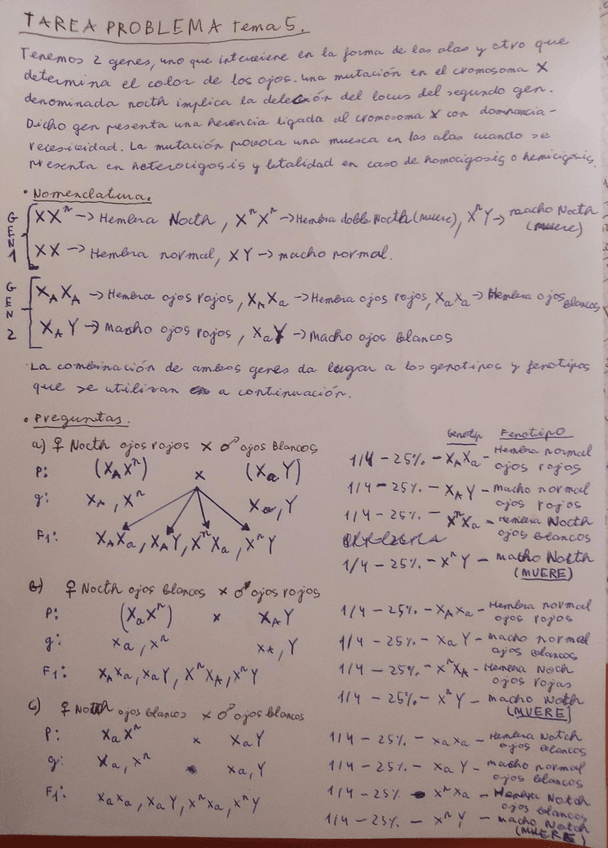 TAREA PROBLEMA Tema 5.
Tenemos 2 genes, uno que interviene en la forma de las alas y otro que
determina el color de los ojos. una mutación en el cromosoma X
denominada nocth implica la deleción del locus del segundo gen.
Dicho gen presenta una herencia ligada al cromosoma X con dominancia-
recesividad. La mutación provoca una muesca en las alas cuando se
presenta en heterocigosis y letalidad en caso de homocigosis o hemicigosis.
• Nomenclatura.
GEN 1
XXⁿ → Hembra Nocth, XⁿXⁿ → Hembra doble Nocth (muere), XⁿY → macho Nocth (muere)
XX → Hembra normal, XY → macho normal.
GEN 2
X_A X_A → Hembra ojos rojos, X_A X_a → Hembra ojos rojos, X_a X_a → Hembra ojos blancos
X_A Y → Macho ojos rojos, X_a Y → Macho ojos blancos
La combinación de ambos genes da lugar a los genotipos y fenotipos
que se utilizan a continuación.
• Preguntas.
a) ♀ Nocth ojos rojos x ♂ ojos blancos
P: (X_A Xⁿ) x (X_a Y)
g: X_A, Xⁿ X_a, Y
F₁: X_A X_a, X_A Y, Xⁿ X_a, Xⁿ Y
Genotip Fenotipo
1/4 - 25% - X_A X_a - Hembra normal
ojos rojos
1/4 - 25% - X_A Y - macho normal
ojos rojos
1/4 - 25% - Xⁿ X_a - Hembra Nocth
ojos blancos
1/4 - 25% - Xⁿ Y - macho Nocth
(MUERE)
b) ♀ Nocth ojos blancos x ♂ ojos rojos
P: (X_a Xⁿ) x X_A Y
g: X_a, Xⁿ X_A, Y
F₁: X_A X_a, X_a Y, Xⁿ X_A, Xⁿ Y
1/4 - 25% - X_A X_a - Hembra normal
ojos rojos
1/4 - 25% - X_a Y - macho normal
ojos blancos
1/4 - 25% - Xⁿ X_A - Hembra Noch
ojos rojas
1/4 - 25% - Xⁿ Y - macho Noth
(MUERE)
c) ♀ Noth ojos blancos x ♂ ojos blancos
P: X_a Xⁿ x X_a Y
g: X_a, Xⁿ X_a, Y
F₁: X_a X_a, X_a Y, Xⁿ X_a, Xⁿ Y
1/4 - 25% - X_a X_a - Hembra Notch
ojos blancos
1/4 - 25% - X_a Y - macho normal
ojos blancos
1/4 - 25% - Xⁿ X_a - Hembra Notch
ojos blancos
1/4 - 25% - Xⁿ Y - macho Notch
(MUERE)